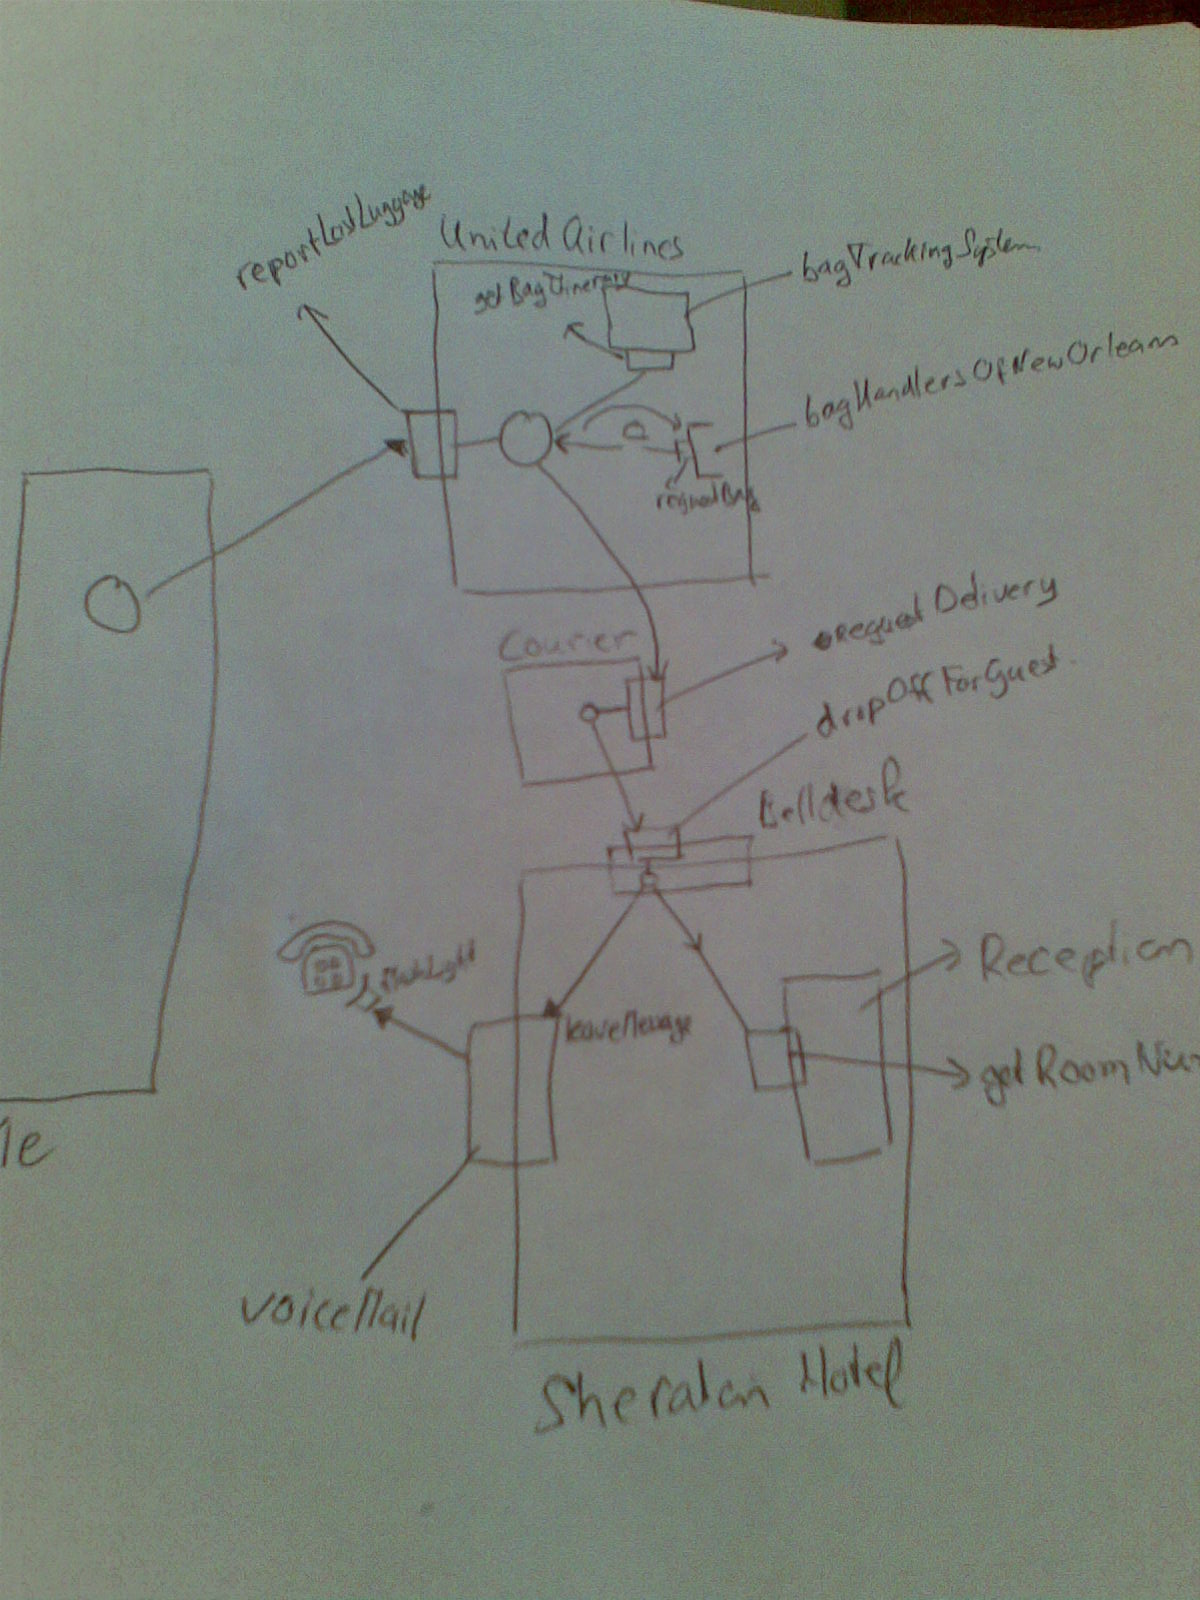 reportLostLuggage
United Airlines
getBagItinerary
bagTrackingSystem
bagHandlersOfNewOrleans
requestBag
Courier
requestDelivery
dropOffForGuest
Belldesk
flashLight
Reception
leaveMessage
getRoomNu
Me
voiceMail
Sheraton Hotel